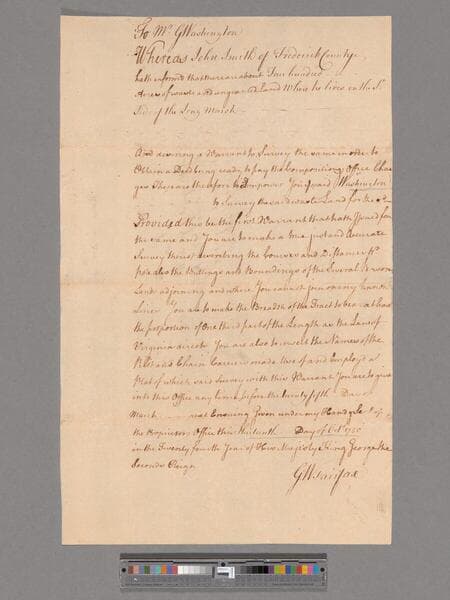 To Mr. GWashington
Whereas John Smith of Frederick County
hath informd that there are about Four hundred
Acres of waste and ungranted Land Where he lives on the So.
Side of the Long Marsh
And desiring a Warrant to Survey the same in order to
Obtain a Deed being ready to pay the Composition & Office Char
ges These are therefore to Empower You, Washington
to Survey the said waste Land for the sd.
Provided this be the first Warrant that hath Issued for
the same and You are to make a true, just and Accurate
Survey thereof describing the Courses and Distance pr.
Pole also the Buttings and Boundings of the Several Persons
Land adjoining and where You cannot join on any known
Lines You are to make the Breadth of the Tract to bear at least
the proportion of One third part of the Length as the Law of
Virginia directs You are also to insert the Names of the
Pilot and Chain Carriers made Use of and Employ'd a
Plat of which said Survey with this Warrant You are to give
into this Office any time before the twenty fifth Day of
March next Ensuing Given under my Hand & Seal of
the Proprietors Office this thirteenth Day of Octr. 1750
in the Twenty fourth Year of His Majesty King George the
Seconds Reign
GWFairfax